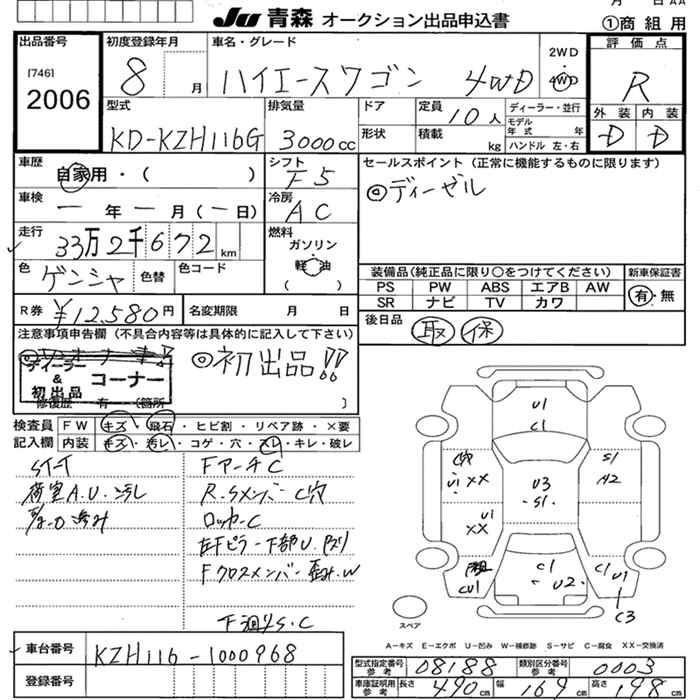 Ju 青森 オークション出品申込書
①商 組 用
出品番号
[746]
2006
初度登録年月
8 月
車名・グレード
ハイエースワゴン 4WD
2WD
4WD
評 価 点
R
外 装 内 装
D D
型式
KD-KZH116G
排気量
3000cc
ドア
形状
定員 10人
積載 kg
ディーラー・並行
モデル
年 式 年
ハンドル 左・右
車歴
自家用・( )
シフト
F5
セールスポイント (正常に機能するものに限ります)
◎ディーゼル
車検
一 年 一 月 (一日)
冷房
AC
走行
33万2千672km
燃料
ガソリン
軽 油
( )
色
ゲンシャ
色替
色コード
装備品(純正品に限り○をつけてください)
新車保証書
PS PW ABS エアB AW
SR ナビ TV カワ
有・無
R券 ¥12,580円
名変期限 月 日
後日品 取 保
注意事項申告欄 (不具合内容等は具体的に記入して下さい)
ディーラー
&
初出品
コーナー
◎初出品!!
修復歴 有 (箇所 )
検査員
記入欄
FW キズ・飛石・ヒビ割・リペア跡・×要
内装 キズ・汚レ・コゲ・穴・スレ・キレ・破レ
荷室A.U.汚レ
FアーチC
R.SメンバーC穴
ロッカーC
左Fピラー下部U.
Fクロスメンバー歪み.W
下廻りS.C
U1
C1
U1 XX
S1
A2
U3
S1
U1
XX
CU1
C1
U2
C1
U1
C3
スペア
A－キズ E－エクボ U－凹み W－補修跡 S－サビ C－腐食 XX－交換済
車台番号
KZH116-1000968
登録番号
型式指定番号
参考
08188
類別区分番号
参考
0003
車庫証明用
参考
長さ 490cm 幅 169cm 高さ 198cm